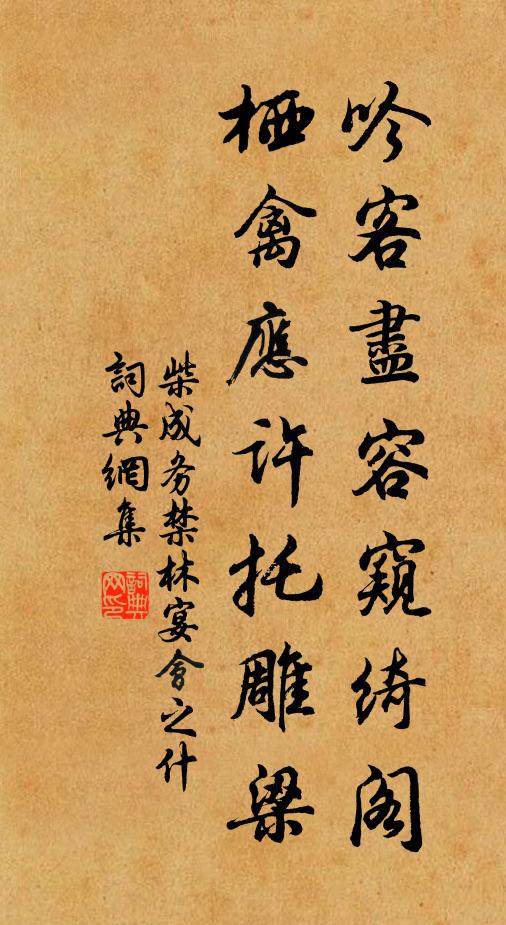 吟客盡容窺綺阁
栖禽應许托雕梁
柴成务禁林宴會之什
詞典網集
詞典网印